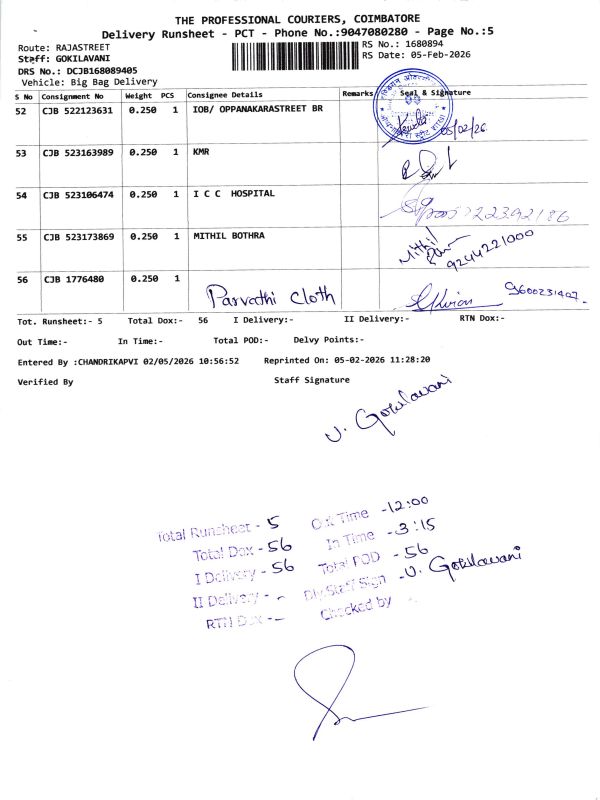 THE PROFESSIONAL COURIERS, COIMBATORE
Delivery Runsheet - PCT - Phone No.:9047080280 - Page No.:5
Route: RAJASTREET
RS No.: 1680894
Staff: GOKILAVANI
RS Date: 05-Feb-2026
DRS No.: DCJB168089405
Vehicle: Big Bag Delivery
S No Consignment No Weight PCS Consignee Details Remarks Seal & Signature
52 CJB 522123631 0.250 1 IOB/ OPPANAKARASTREET BR 05/02/26
53 CJB 523163989 0.250 1 KMR
54 CJB 523106474 0.250 1 I C C HOSPITAL
55 CJB 523173869 0.250 1 MITHIL BOTHRA Mithil 9244221000
56 CJB 1776480 0.250 1 Parvathi Cloth 9600231407
Tot. Runsheet:- 5 Total Dox:- 56 I Delivery:- II Delivery:- RTN Dox:-
Out Time:- In Time:- Total POD:- Delvy Points:-
Entered By :CHANDRIKAPVI 02/05/2026 10:56:52 Reprinted On: 05-02-2026 11:28:20
Verified By Staff Signature
V. Gokilavani
Total Runsheet - 5 Out Time -12:00
Total Dox - 56 In Time -3:15
I Delivery - 56 Total POD - 56
II Delivery - - Dly.Staff Sign -V. Gokilavani
RTN Dox - - Checked by -